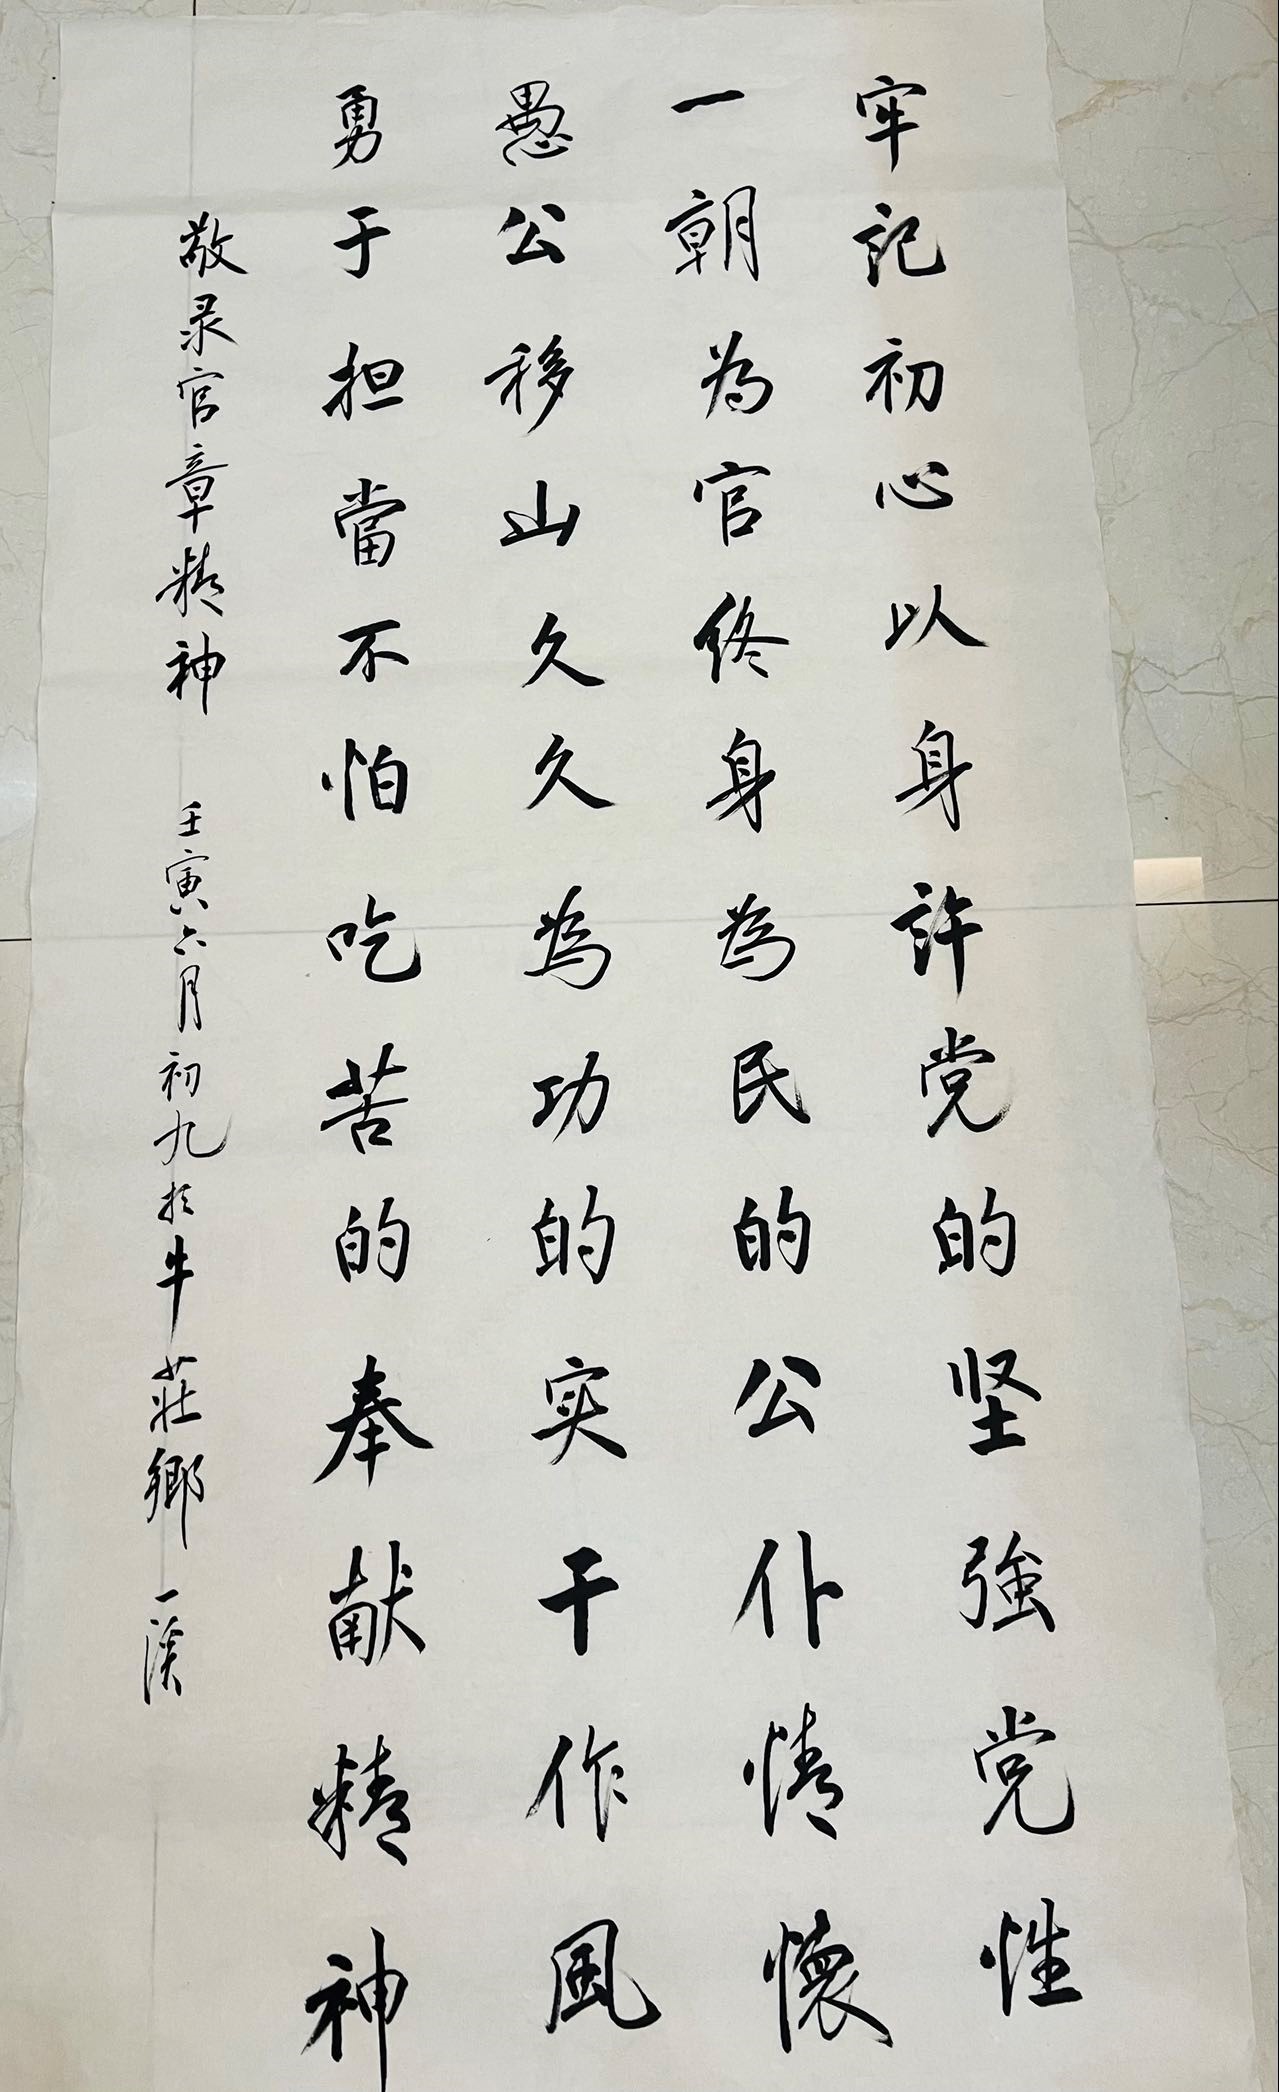 牢記初心以身許党的坚強党性
一朝为官终身為民的公仆情懷
愚公移山久久為功的实干作風
勇于担當不怕吃苦的奉献精神
敬录官章精神 壬寅六月初九於牛莊鄉 一溪